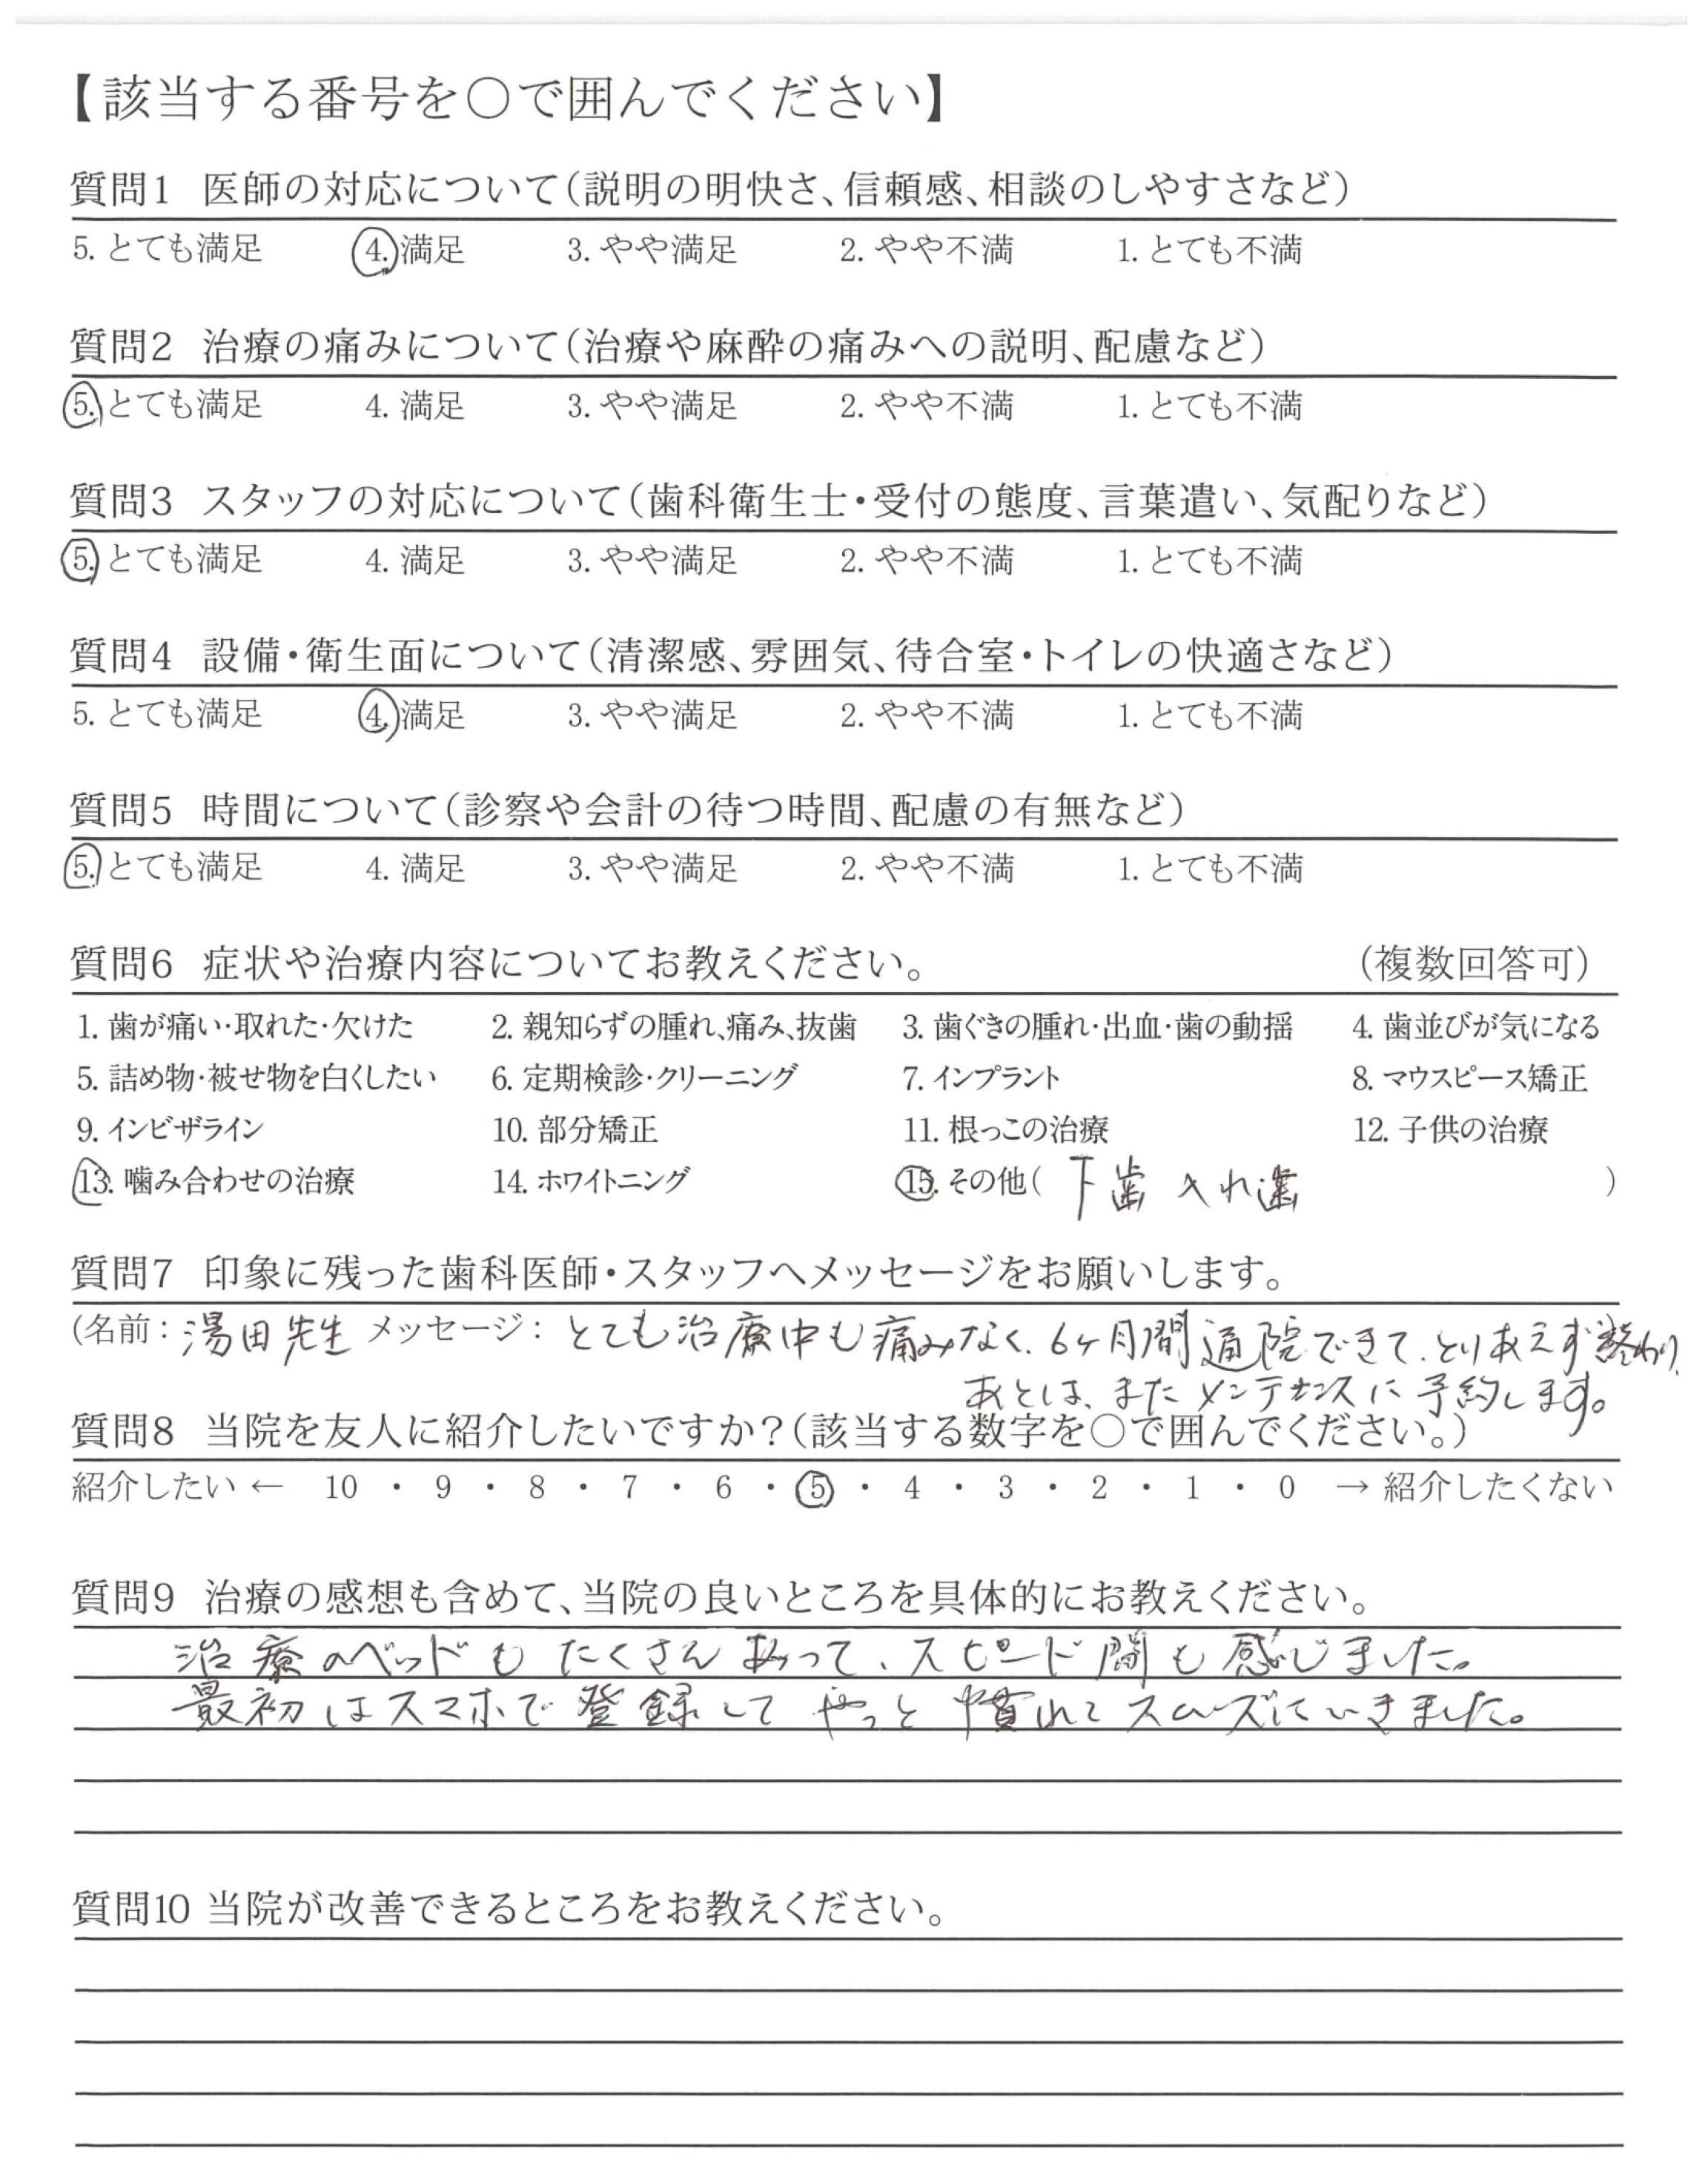 【該当する番号を○で囲んでください】
質問1 医師の対応について(説明の明快さ、信頼感、相談のしやすさなど)
5. とても満足 4. 満足 3. やや満足 2. やや不満 1. とても不満
質問2 治療の痛みについて(治療や麻酔の痛みへの説明、配慮など)
5. とても満足 4. 満足 3. やや満足 2. やや不満 1. とても不満
質問3 スタッフの対応について(歯科衛生士・受付の態度、言葉遣い、気配りなど)
5. とても満足 4. 満足 3. やや満足 2. やや不満 1. とても不満
質問4 設備・衛生面について(清潔感、雰囲気、待合室・トイレの快適さなど)
5. とても満足 4. 満足 3. やや満足 2. やや不満 1. とても不満
質問5 時間について(診察や会計の待つ時間、配慮の有無など)
5. とても満足 4. 満足 3. やや満足 2. やや不満 1. とても不満
質問6 症状や治療内容についてお教えください。 (複数回答可)
1. 歯が痛い・取れた・欠けた 2. 親知らずの腫れ、痛み、抜歯 3. 歯ぐきの腫れ・出血・歯の動揺 4. 歯並びが気になる
5. 詰め物・被せ物を白くしたい 6. 定期検診・クリーニング 7. インプラント 8. マウスピース矯正
9. インビザライン 10. 部分矯正 11. 根っこの治療 12. 子供の治療
13. 噛み合わせの治療 14. ホワイトニング 15. その他( 下歯 入れ歯 )
質問7 印象に残った歯科医師・スタッフへメッセージをお願いします。
(名前: 湯田先生 メッセージ: とても治療中も痛みなく、6ヶ月間通院できて、とりあえず終わり、
あとは、またメンテナンスに予約します。
質問8 当院を友人に紹介したいですか?(該当する数字を○で囲んでください。)
紹介したい ← 10 ・ 9 ・ 8 ・ 7 ・ 6 ・ 5 ・ 4 ・ 3 ・ 2 ・ 1 ・ 0 → 紹介したくない
質問9 治療の感想も含めて、当院の良いところを具体的にお教えください。
治療のベッドもたくさんあって、スピード間も感じました。
最初はスマホで登録してやっと慣れてスムーズにいきました。
質問10 当院が改善できるところをお教えください。